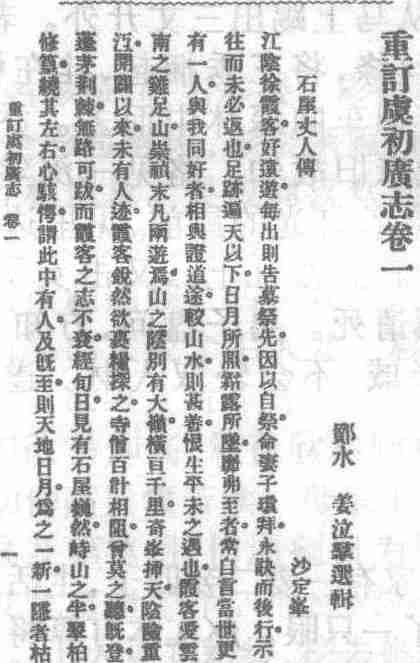 重訂虞初廣志卷一
鄮水 姜泣羣選輯
石屋丈人傳
沙定峯
江陰徐霞客好遠遊每出則告墓祭先因以自祭命妻子環拜永訣而後行示
往而未必返也足跡遍天以下日月所照霜露所墜靡弗至者常自言當世更
有一人與我同好者相與證道途較山水則甚善恨生平未之遇也霞客愛雲
南之雞足山崇禎末凡兩遊焉山之陰別有大嶺橫亘千里奇峯揷天陰險重
沍開闢以來未有人迹霞客銳然欲裹糧探之寺僧百計相阻曾莫之聽旣登
蓬茅荆棘無路可跋而霞客之志不衰經旬日見有石屋巍然峙山之半翠柏
修篁繞其左右心駭愕謂此中有人及旣至則天地日月爲之一新一隱者枯
重訂虞初廣志 卷一
一